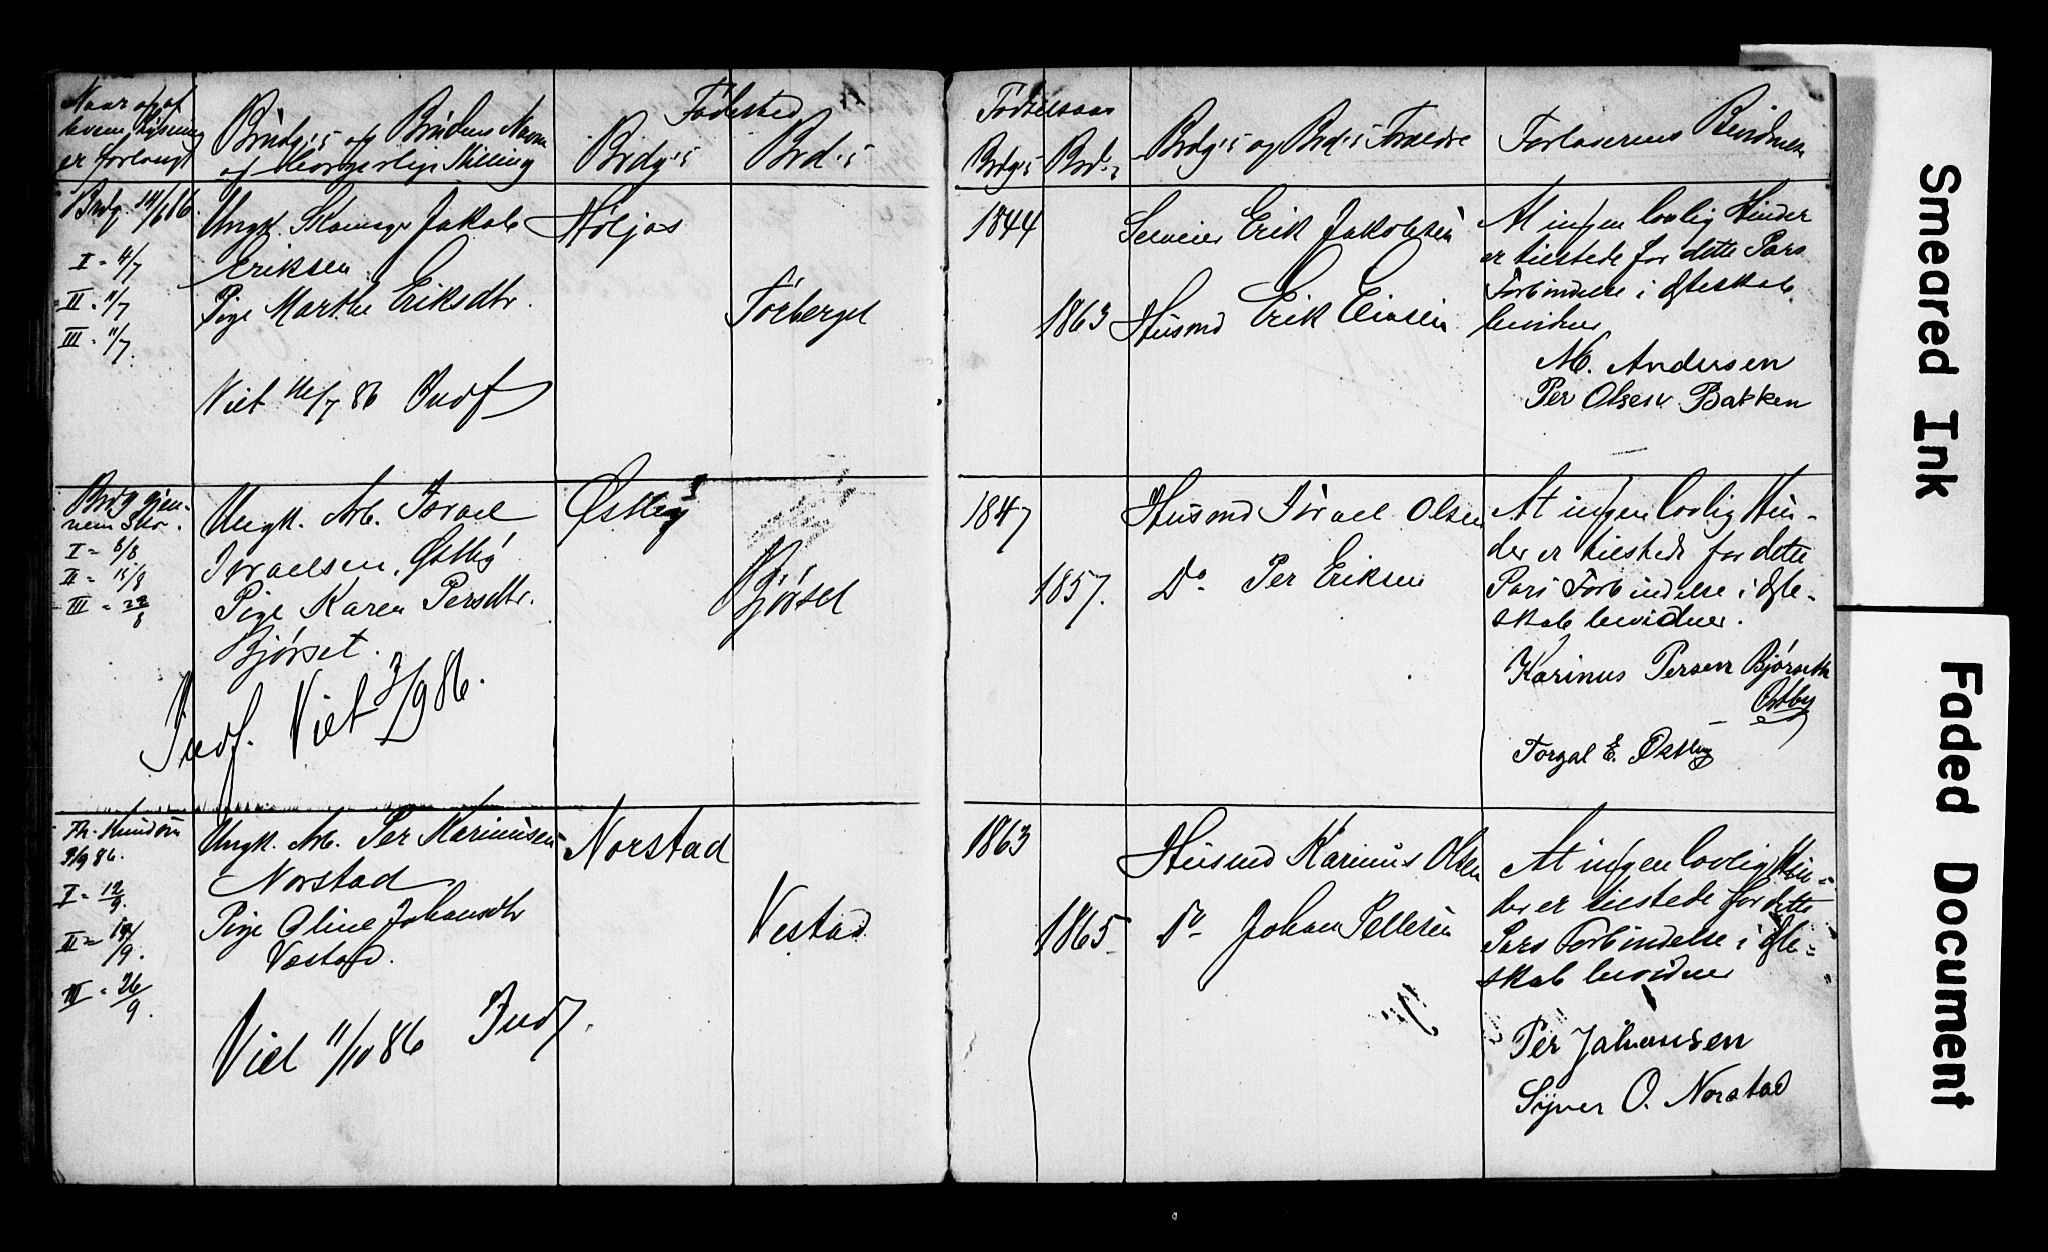 Naar og af
hvem Lysning
er forlangt
Brudg's og Brudens Navn
og borgerlige Stilling
Fødested
Brdg's
Brd's
Fødselsaar
Brdg's
Brd's
Brdg's og Brd's Forældre
Forloverens Bevidnelse
Brdg. 14/6 86.
I = 4/7
II = 11/7
III = 11/7.
Ungk. Jakob
Eriksen
Pige Marthe Eriksdtr.
Viet 16/7 86 Indf
Høljas
Førberget
1844
1863
Erik Jakobsen
Husmd Erik
At ingen lovlig Hinder
er tilstede for dette Pars
Forbindelse i Ægteskab
bevidner
M. Andersen
Per Olsen Bakken
Brdg gjen-
nem Skr.
I = 8/8
II = 15/8
III = 22/8
Ungk. Arb. Israel
Israelsen, Østby
Pige Karen Persdtr.
Bjørset.
Indf. Viet 3/9 86.
Østby
Bjørset
1847
1857.
Husmd Israel Olsen
Do Per Eriksen
At ingen lovlig Hin-
der er tilstede for dette
Pars Forbindelse i Ægte-
skab bevidner.
Karinus Persen Bjørseth
Østby
Torgal E. Østby
Th. Knudsen
9/9 86.
I = 12/9.
II = 19/9.
III = 26/9.
Ungk. Arb. Per Karinusen
Norstad
Pige Oline Johansdtr
Vestad.
Viet 11/10 86 Indf.
Norstad
Vestad
1863
1865
Husmd Karinus Olsen
Do Johan Pettersen
At ingen lovlig Hin-
der er tilstede for dette
Pars Forbindelse i Ægte-
skab bevidner
Per Johansen
Syver O. Norstad
Smeared Ink
Faded Document